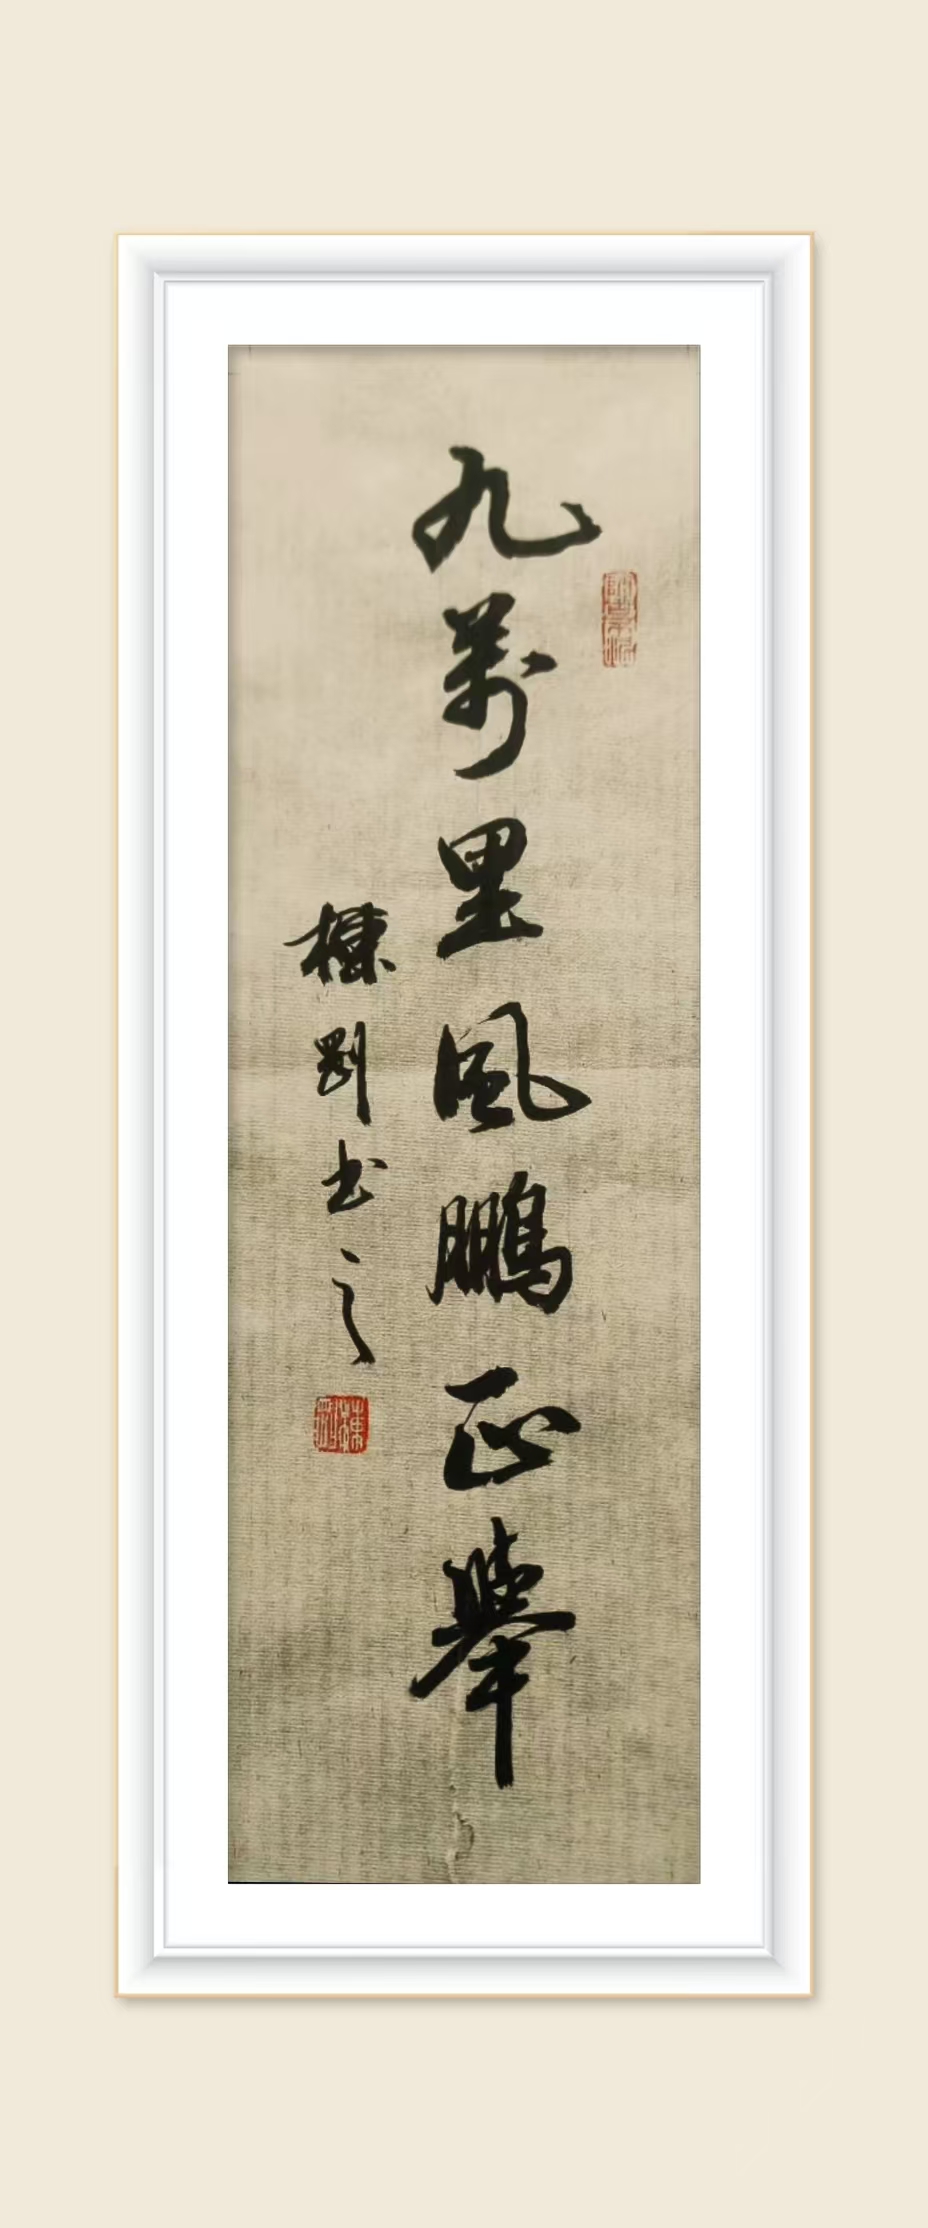 九萬里風鵬正舉
剛書之